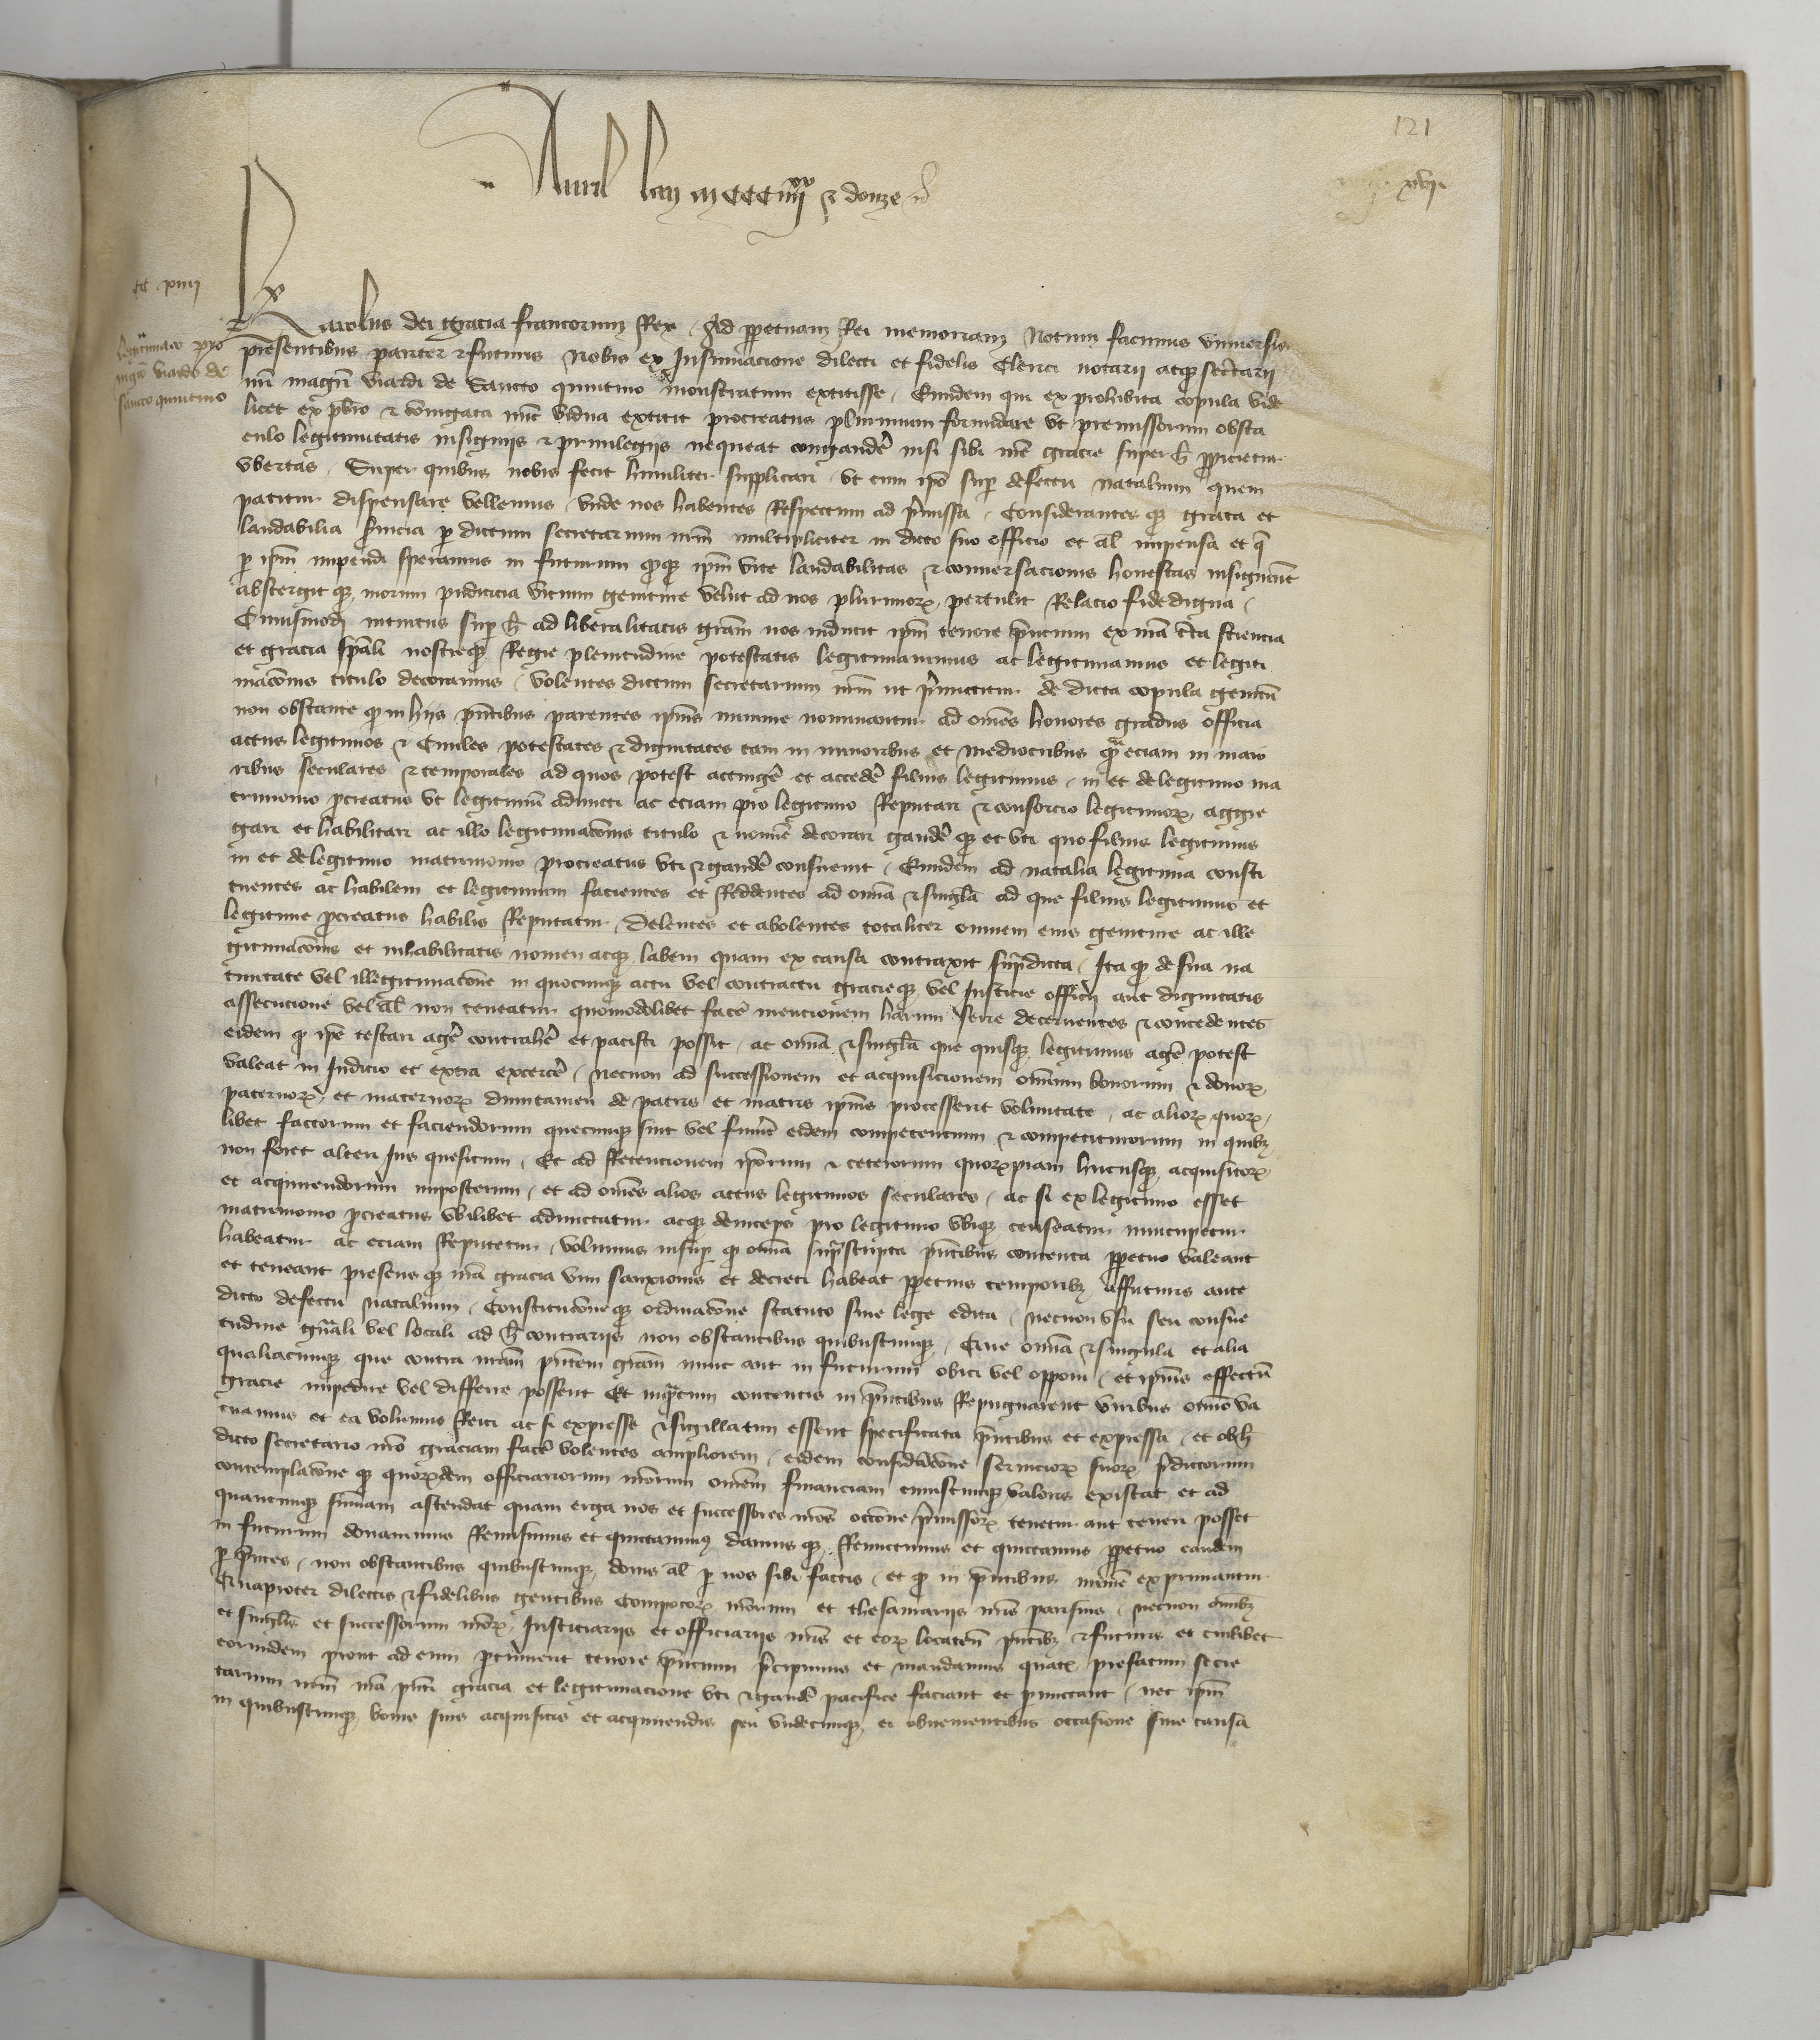 121
Avril lan mccciiiixx & douze
xvii
cc xiiii
legitimacio pro
magro viardo de
sancto quintino
Karolus dei gracia francorum Rex Ad ppetuam Rei memoriam Notum facimus vniversis
presentibus pariter & futuris Nobis ex Insinuacione dilecti et fidelis Clerici notarii atqz secretarii
nri magri viardi de Sancto quintino monstratum extitisse Eundem qui ex prohibita copula vide
licet ex pbro & coniugata nunc vidua extitit procreatus plurimum formidare vt premissorum obsta
culo legitimitatis insigniis & privilegiis nequeat congaudere nisi sibi nre gracie super h ppicietur
vbertas Super quibus nobis fecit humiliter supplicari vt cum ipo sup defectu natalium quem
patitur dispensare vellemus vnde nos habentes Respectum ad pmissa Considerantes qz grata et
laudabilia servicia p dictum secretarium nrm multipliciter in dicto suo officio et al impensa et q
p ipm impendi speramus in futurum qz ipm vite laudabilitas & conversacionis honestas insigniunt
abstergit qz morum pudicicia vicium geniture velut ad nos plurimorum pertulit Relacio fidedigna
Cuiusmodi intuitus sup h ad liberalitatis gram nos inducit ipm tenore pntium ex nra certa sciencia
et gracia spali nostreqz Regie plenitudine potestatis legitimavimus ac legitimamus et legiti
macionis titulo decoramus volentes dictum secretarium nrm ut pmittitur de dicta copula genitum
non obstante q in hiis pntibus parentes ipius minime nominantur ad omes honores gradus officia
actus legitimos & Civiles potestates & dignitates tam in minoribus et mediocribus qm eciam in maio
ribus seculares & temporales ad quos potest attingere et accedere filius legitimus in et de legitimo ma
trimonio pcreatus vt legitimum admitti ac eciam pro legitimo Reputari & consorcio legitimorum aggre
gari et habilitari ac illo legitimacionis titulo & nomine decorari gaudere qz et vti quo filius legitimus
in et de legitimo matrimonio procreatus vti & gaudere consuevit Eundem ad natalia legitima consti
tuentes ac habilem et legitimum facientes et Reddentes ad omia & singula ad que filius legitimus et
legitime pcreatus habilis Reputatur delentes et abolentes totaliter omnem eius geniture ac ille
gitimacionis et inhabilitatis nomen atqz labem quam ex causa contraxit supradicta Ita q de sua na
tivitate vel illegitimacione in quocumqz actu vel contractu gracieqz vel Iusticie officii aut dignitatis
assecucione vel al non teneatur quomodolibet facere mencionem harum serie decernentes & concedentes
eidem q ipe testari agere contrahere et pacisci possit ac omia & singula que quisqz legitimus agere potest
valeat in Iudicio et extra exercere necnon ad successionem et acquisicionem omnium bonorum & donorum
paternorum et maternorum dumtamen de patris et matris ipius processerit voluntate ac aliorum quorum
libet factorum et faciendorum quecumqz sint vel fuerint eidem competencium & competiturorum in quibz
non foret alteri Ius quesitum Et ad Retencionem iporum & ceterorum quorumpiam hucusqz acquisitorum
et acquirendorum imposterum et ad omes alios actus legitimos seculares ac si ex legitimo esset
matrimonio pcreatus vbilibet admittatur atqz deinceps pro legitimo vbiqz censeatur nuncupetur
habeatur ac eciam Reputetur volumus insup q omia suprascripta pntibus contenta ppetuo valeant
et teneant presens qz nra gracia vim sanxionis et decreti habeat ppetuis temporibz affuturis ante
dicto defectu natalium Constitucioneqz ordinacione statuto sive lege edita necnon vsu seu consue
tudine gnali vel locali ad h contrariis non obstantibus quibuscumqz Que omia & singula et alia
qualiacumqz que contra nram pntem gram nunc aut in futurum obici vel opponi et ipius effectum
gracie impedire vel differre possent Et inqtum contentis in pntibus Repugnarent viribus omino va
cuamus et ea volumus Reici ac si expresse & sigillatim essent specificata pntibus et expressa et ob h
dicto secretario nro graciam facere volentes ampliorem eidem consideracione serviciorum suorum pdictorum
contemplacione qz quorundem officiariorum nrorum omem financiam cuiuscumqz valoris existat et ad
quamcumqz summam ascendat quam erga nos et successores nros occasione pmissorum tenetur aut teneri posset
in futurum donavimus Remisimus et quictavimus damus qz Remittimus et quictamus ppetuo eandem
p pntes non obstantibus quibuscumqz donis al p nos sibi factis et q in pntibus minime exprimantur
Quapropter dilectis & fidelibus gentibus Compotorum nrorum et thesaurariis nris parisius necnon omibz
et singulis et successorum nrorum Iusticiariis et officiariis nris et eorum locaten pntibz & futuris et cuilibet
eorumdem prout ad eum ptinuerit tenore pntium pcipimus et mandamus quatenus prefatum secre
tarium nrm nra pnti gracia et legitimacione vti & gaudere pacifice faciant et pmittant nec ipm
in quibuscumqz bonis suis acquisitis et acquirendis seu vndecumqz ei obvenientibus occasione sive causa